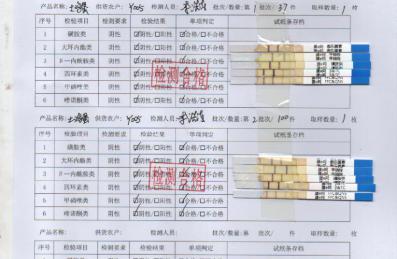 产品名称: 土鸡蛋 供货农户: Y005 检测人员: 批次/数量:第 1 批次/ 37 件 取样数量: 1 枚
序号 检验项目 检测要素 检验结果 单项判定 试纸条存档
1 磺胺类 阴性 ☑阴性/□阳性 ☑合格/□不合格
2 大环内酯类 阴性 ☑阴性/□阳性 ☑合格/□不合格
3 β一内酰胺类 阴性 ☑阴性/□阳性 ☑合格/□不合格
4 四环素类 阴性 ☑阴性/□阳性 ☑合格/□不合格
5 甲硝唑类 阴性 ☑阴性/□阳性 ☑合格/□不合格
6 喹诺酮类 阴性 ☑阴性/□阳性 ☑合格/□不合格
检测合格
产品名称: 土鸡蛋 供货农户: Y005 检测人员: 批次/数量:第 2 批次/ 100 件 取样数量: 1 枚
序号 检验项目 检测要素 检验结果 单项判定 试纸条存档
1 磺胺类 阴性 ☑阴性/□阳性 ☑合格/□不合格
2 大环内酯类 阴性 ☑阴性/□阳性 ☑合格/□不合格
3 β一内酰胺类 阴性 ☑阴性/□阳性 ☑合格/□不合格
4 四环素类 阴性 ☑阴性/□阳性 ☑合格/□不合格
5 甲硝唑类 阴性 ☑阴性/□阳性 ☑合格/□不合格
6 喹诺酮类 阴性 ☑阴性/□阳性 ☑合格/□不合格
检测合格
产品名称: 供货农户: 检测人员: 批次/数量:第 批次/ 件 取样数量: 枚
序号 检验项目 检测要素 检验结果 单项判定 试纸条存档
1 磺胺类 阴性 □阴性/□阳性 □合格/□不合格